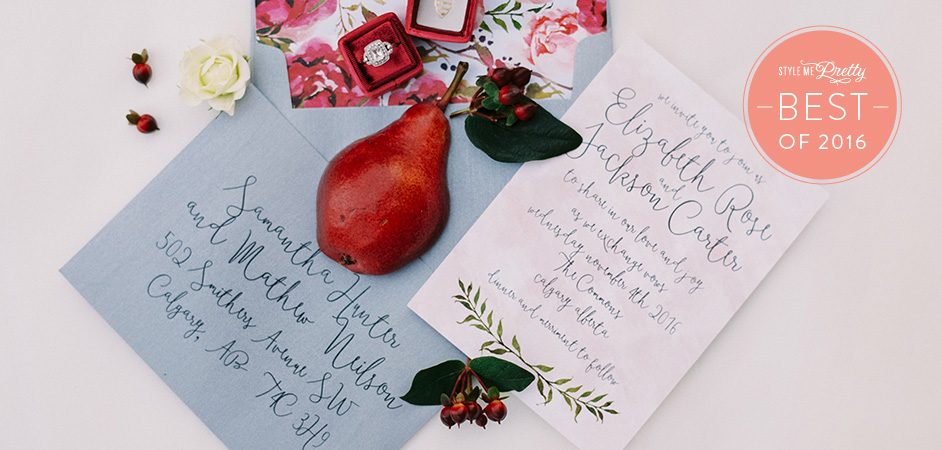 Samantha Hunter
and Mathew Neilson
502 Smithers Avenue SW
Calgary, AB
3H9
we invite you to join us
Elizabeth Rose
and
Jackson Carter
to share in our love and joy
as we exchange vows
wednesday november 2016
The Commons
calgary alberta
dinner and merriment to follow
STYLE ME Pretty
BEST
OF 2016